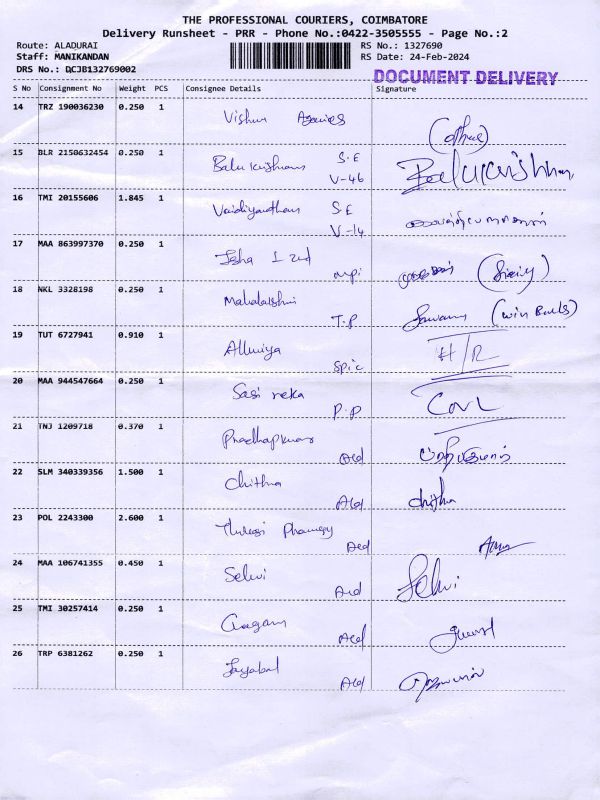 THE PROFESSIONAL COURIERS, COIMBATORE
Delivery Runsheet - PRR - Phone No.:0422-3505555 - Page No.:2
Route: ALADURAI RS No.: 1327690
Staff: MANIKANDAN RS Date: 24-Feb-2024
DRS No.: DCJB132769002
DOCUMENT DELIVERY
S No Consignment No Weight PCS Consignee Details Signature
14 TRZ 190036230 0.250 1 Vishnu
15 BLR 2150632454 0.250 1 Balu krishnan S.E
V-46 Balukrishnan
16 TMI 20155606 1.845 1 Vaidiyanathan S.E
V-14
17 MAA 863997370 0.250 1
18 NKL 3328198 0.250 1 Mahalakshmi T.P
19 TUT 6727941 0.910 1 H/R
20 MAA 944547664 0.250 1 Sasi reka P.P
21 TNJ 1209718 0.370 1 Pradhapkumar
22 SLM 340339356 1.500 1 Chithra chithra
23 POL 2243300 2.600 1
24 MAA 106741355 0.450 1 Selvi Selvi
25 TMI 30257414 0.250 1
26 TRP 6381262 0.250 1 Jayabal